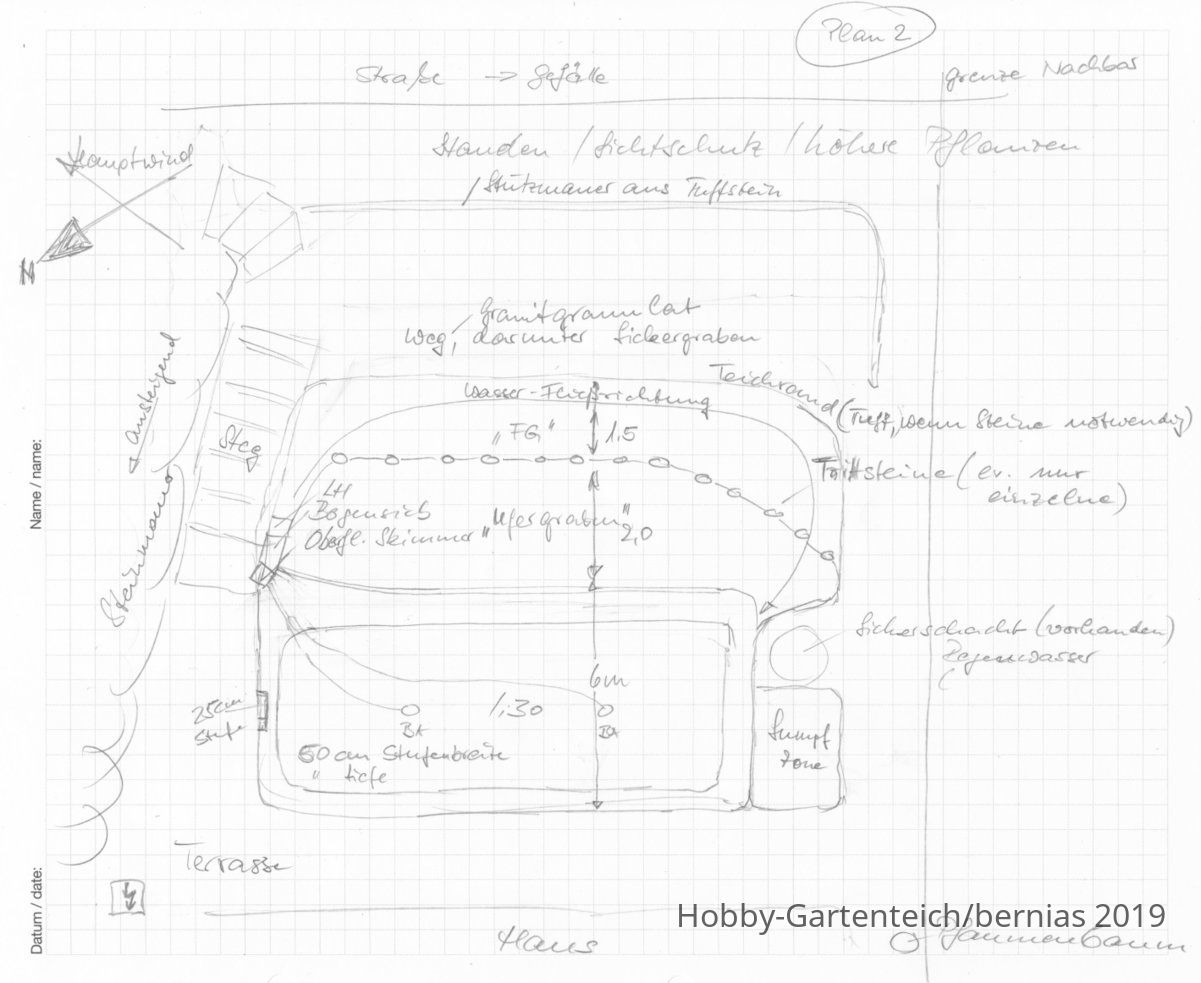 Plan 2
Straße → Gefälle
Grenze Nachbar
Hauptwind
Stauden / Sichtschutz / höhere Pflanzen
/ Stützmauer aus Tuffstein
N
Granitgranulat
Weg, darunter Sickergraben
← ansteigend
Steinmauer
Steg
Teichrand (Tuff, wenn Steine notwendig)
Wasser-Fließrichtung
"FG" 1,5
Trittsteine (ev. nur
einzelne)
LH
Bogensieb
Oberfl. Skimmer
"Ufergraben" 2,0
Sickerschacht (vorhanden)
Regenwasser
6m
25cm
Stufe
1,30
BA
BA
50 cm Stufenbreite
" tiefe
Sumpf
zone
Terrasse
Haus
Pflaumenbaum
Hobby-Gartenteich/bernias 2019
Name / name:
Datum / date: